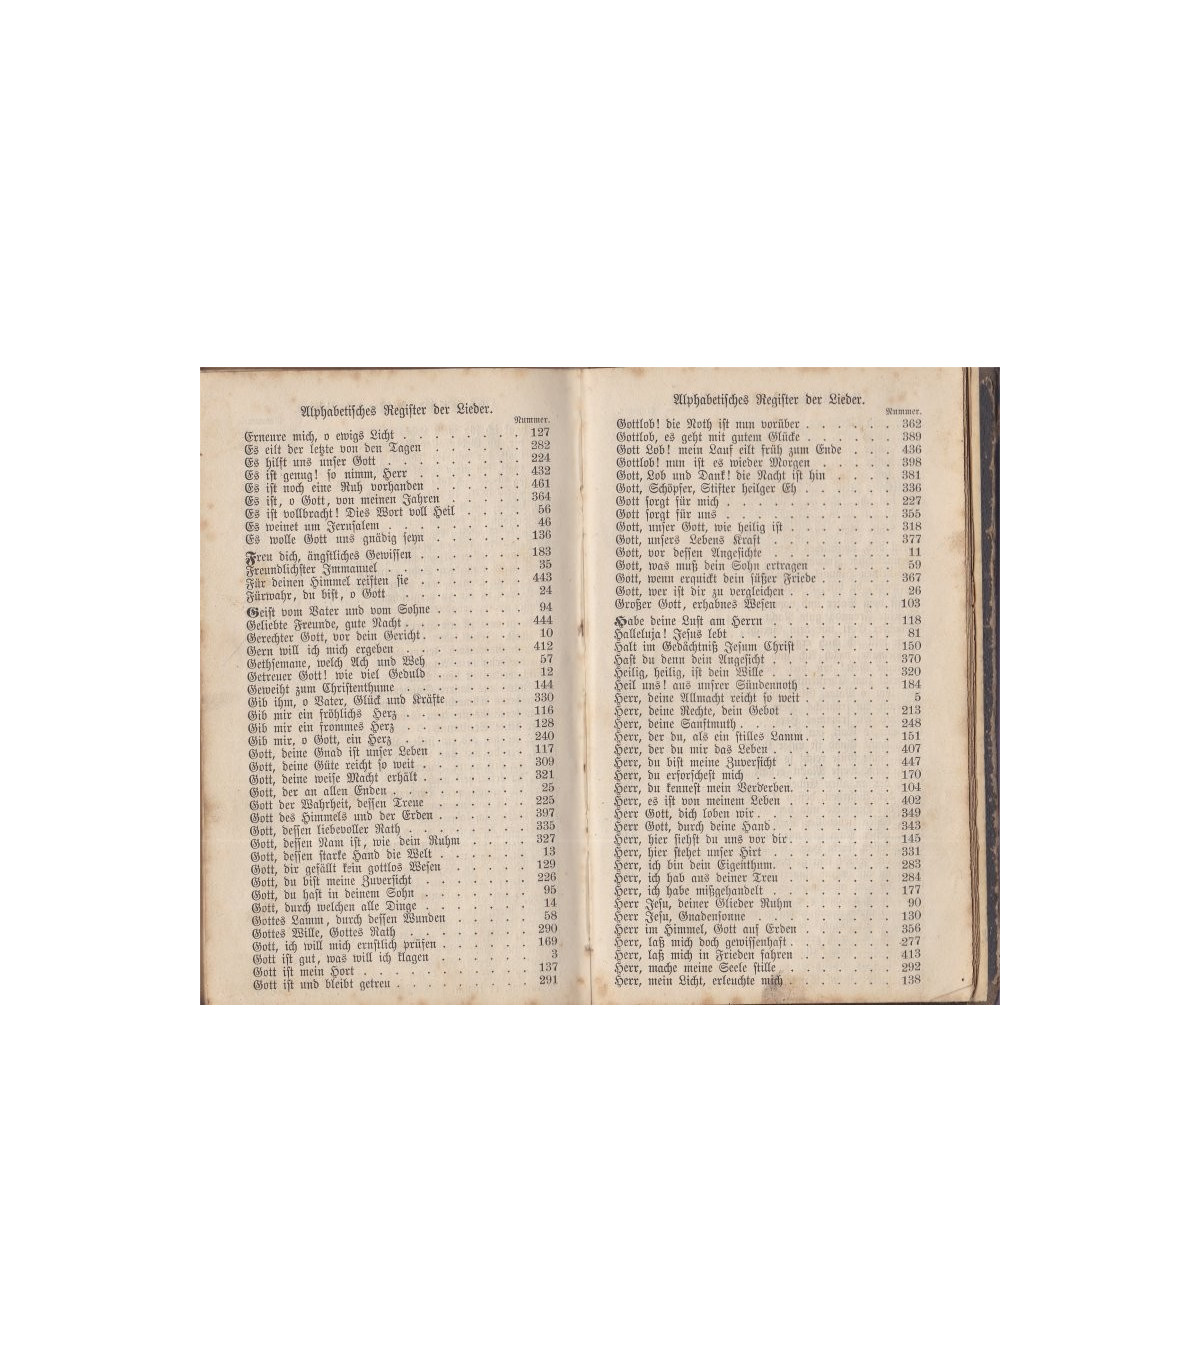 Alphabetisches Register der Lieder.
Nummer.
Erneure mich, o ewigs Licht . . . . . . . . 127
Es eilt der letzte von den Tagen . . . . . . 282
Es hilft uns unser Gott . . . . . . . . . 224
Es ist genug! so nimm, Herr . . . . . . . 432
Es ist noch eine Ruh vorhanden . . . . . . 461
Es ist, o Gott, von meinen Jahren . . . . . 364
Es ist vollbracht! Dies Wort voll Heil . . . . 56
Es weinet um Jerusalem . . . . . . . . . 46
Es wolle Gott uns gnädig seyn . . . . . . 136
Freu dich, ängstliches Gewissen . . . . . . . 183
Freundlichster Immanuel . . . . . . . . . 35
Für deinen Himmel reisten sie . . . . . . . 443
Fürwahr, du bist, o Gott . . . . . . . . 24
Geist vom Vater und vom Sohne . . . . . . 94
Geliebte Freunde, gute Nacht . . . . . . . . 444
Gerechter Gott, vor dein Gericht . . . . . . . 10
Gern will ich mich ergeben . . . . . . . . 412
Gethsemane, welch Ach und Weh . . . . . . 57
Getreuer Gott! wie viel Geduld . . . . . . 12
Geweiht zum Christenthume . . . . . . . . 144
Gib ihm, o Vater, Glück und Kräfte . . . . . 330
Gib mir ein fröhlichs Herz . . . . . . . . 116
Gib mir ein frommes Herz . . . . . . . . 128
Gib mir, o Gott, ein Herz . . . . . . . . 240
Gott, deine Gnad ist unser Leben . . . . . . 117
Gott, deine Güte reicht so weit . . . . . . . 309
Gott, deine weise Macht erhält . . . . . . . 321
Gott, der an allen Enden . . . . . . . . . 25
Gott der Wahrheit, dessen Treue . . . . . . 225
Gott des Himmels und der Erden . . . . . . 397
Gott, dessen liebevoller Rath . . . . . . . . 335
Gott, dessen Nam ist, wie dein Ruhm . . . . 327
Gott, dessen starke Hand die Welt . . . . . . 13
Gott, dir gefällt kein gottlos Wesen . . . . . 129
Gott, du bist meine Zuversicht . . . . . . . 226
Gott, du hast in deinem Sohn . . . . . . . 95
Gott, durch welchen alle Dinge . . . . . . . 14
Gottes Lamm, durch dessen Wunden . . . . . 58
Gottes Wille, Gottes Rath . . . . . . . . 290
Gott, ich will mich ernstlich prüfen . . . . . . 169
Gott ist gut, was will ich klagen . . . . . . 3
Gott ist mein Hort . . . . . . . . . . 137
Gott ist und bleibt getreu . . . . . . . . . 291
Alphabetisches Register der Lieder.
Nummer.
Gottlob! die Noth ist nun vorüber . . . . . . 362
Gottlob, es geht mit gutem Glücke . . . . . . 389
Gott Lob! mein Lauf eilt früh zum Ende . . . 436
Gottlob! nun ist es wieder Morgen . . . . . 398
Gott, Lob und Dank! die Nacht ist hin . . . . 381
Gott, Schöpfer, Stifter heilger Eh . . . . . . 336
Gott sorgt für mich . . . . . . . . . . 227
Gott sorgt für uns . . . . . . . . . . 355
Gott, unser Gott, wie heilig ist . . . . . . . 318
Gott, unsers Lebens Kraft . . . . . . . . 377
Gott, vor dessen Angesichte . . . . . . . . 11
Gott, was muß dein Sohn ertragen . . . . . 59
Gott, wenn erquickt dein süßer Friede . . . . . 367
Gott, wer ist dir zu vergleichen . . . . . . . 26
Großer Gott, erhabnes Wesen . . . . . . . 103
Habe deine Lust am Herrn . . . . . . . . 118
Halleluja! Jesus lebt . . . . . . . . . . 81
Halt im Gedächtniß Jesum Christ . . . . . . 150
Hast du denn dein Angesicht . . . . . . . . 370
Heilig, heilig, ist dein Wille . . . . . . . . 320
Heil uns! aus unsrer Sündennoth . . . . . . 184
Herr, deine Allmacht reicht so weit . . . . . . 5
Herr, deine Rechte, dein Gebot . . . . . . . 213
Herr, deine Sanftmuth . . . . . . . . . . 248
Herr, der du, als ein stilles Lamm . . . . . . 151
Herr, der du mir das Leben . . . . . . . . 407
Herr, du bist meine Zuversicht . . . . . . . 447
Herr, du erforschest mich . . . . . . . . . 170
Herr, du kennest mein Verderben. . . . . . . 104
Herr, es ist von meinem Leben . . . . . . . 402
Herr Gott, dich loben wir . . . . . . . . . 349
Herr Gott, durch deine Hand . . . . . . . . 343
Herr, hier siehst du uns vor dir . . . . . . . 145
Herr, hier stehet unser Hirt . . . . . . . . 331
Herr, ich bin dein Eigenthum. . . . . . . . 283
Herr, ich hab aus deiner Treu . . . . . . . 284
Herr, ich habe mißgehandelt . . . . . . . . 177
Herr Jesu, deiner Glieder Ruhm . . . . . . 90
Herr Jesu, Gnadensonne . . . . . . . . . 130
Herr im Himmel, Gott auf Erden . . . . . . 356
Herr, laß mich doch gewissenhaft . . . . . . . 277
Herr, laß mich in Frieden fahren . . . . . . 413
Herr, mache meine Seele stille . . . . . . . 292
Herr, mein Licht, erleuchte mich . . . . . . . 138